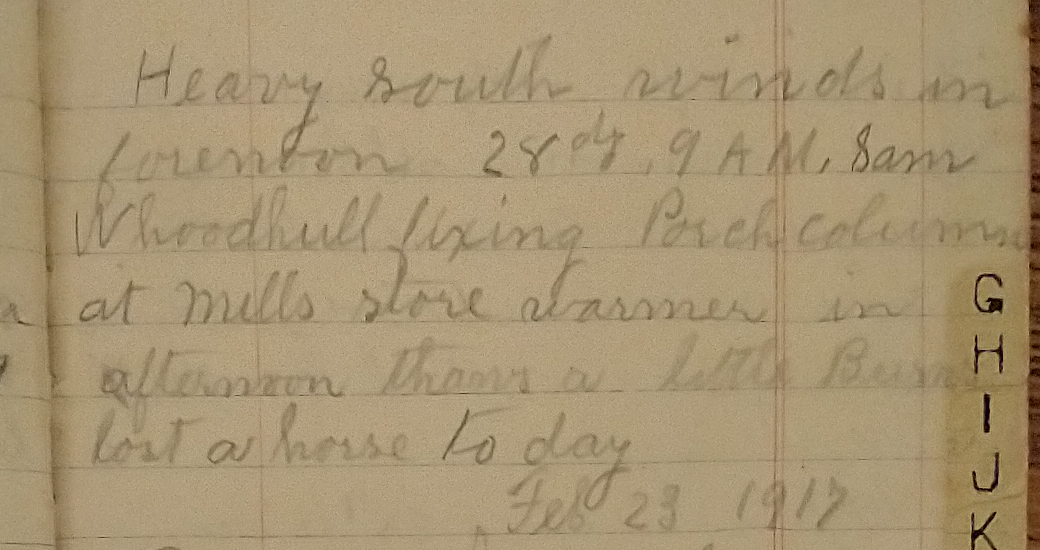 Heavy south winds in
forenoon 28 dg. 9 A M, Sam
Whoodhull fixing Porch column
at mills store warmer in
afternoon thaws a little
lost a horse to day
Feb 23 1917
G
H
I
J
K